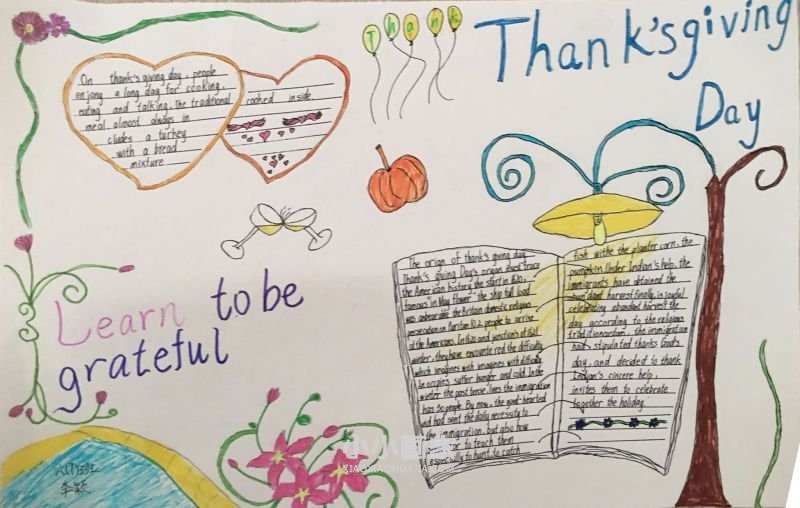 Thank
Thank'sgiving
Day
On thank's giving day, people
enjong a long day for cooking,
eating and talking. the traditional
meal almost always in
cludes a turkey
with a bread
mixture
cooked inside.
Learn to be
grateful
The origan of thank's giving day
Thank's giving Day's origan must trace
the American history the start in 1620,
famous "in May flower" the ship full load
was unbearable the Britain domestic religion
persecution on Puritan 102 people to arrive
at the Americans. In
winter, they have encounte red the difficulty
which imagines with imagines with difficulty
In occpies, suffer hunger and cold. In the
winter the past tense, lives the immigration
has 50 people. By now, the good-hearted
and had sent the daily necessity to
the immigration, but also how
to teach them
especially to hunt, to catch
fish withe the planter corn, the
pumpkin. Under Indian's help, the
immigrants have obtained the
abundant harvest finally, is joyful
celebrating abundant harvest the
day according to the religious
the immigration
had stipulated thanks Gods
day, and decided to thank
Indian's sincere help,
invites them to celebrate
together the holiday.
班
李颖
XIAOXIAOHUAJIA.COM